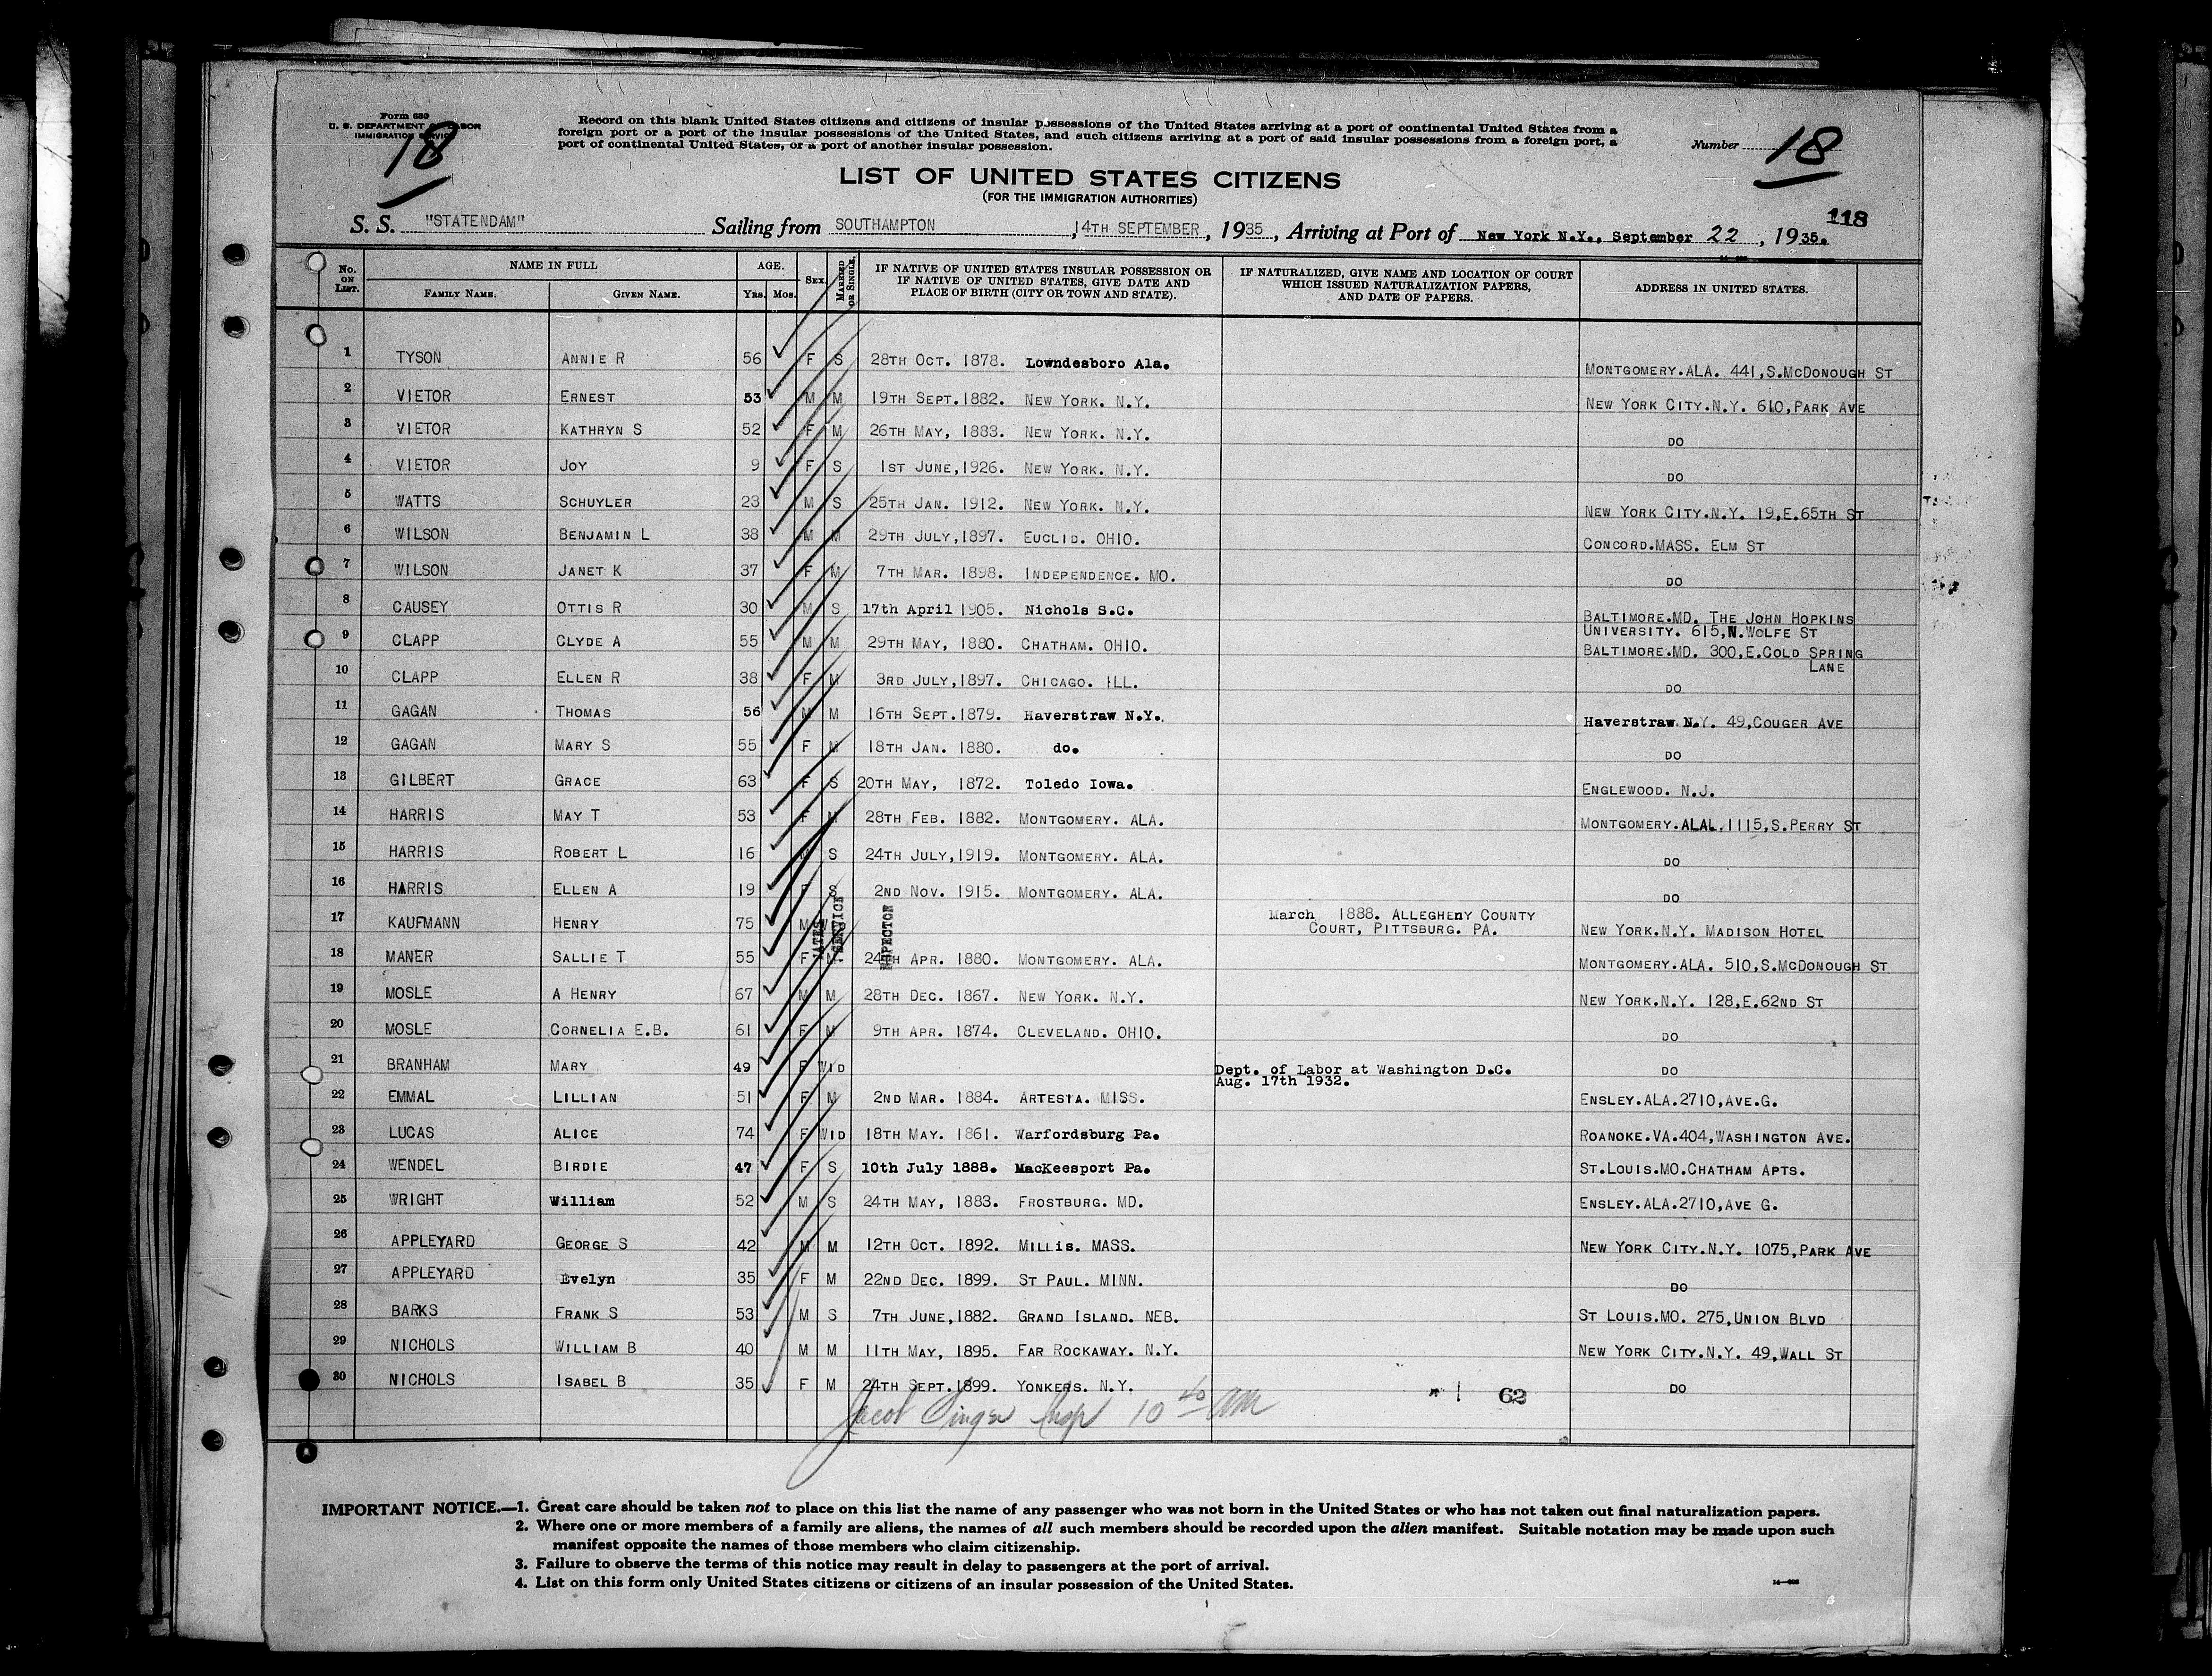 Form 630
U. S. DEPARTMENT OF LABOR
IMMIGRATION SERVICE
18
Record on this blank United States citizens and citizens of insular possessions of the United States arriving at a port of continental United States from a
foreign port or a port of the insular possessions of the United States, and such citizens arriving at a port of said insular possessions from a foreign port, a
port of continental United States, or a port of another insular possession.
Number 18
LIST OF UNITED STATES CITIZENS
(FOR THE IMMIGRATION AUTHORITIES)
118
S. S. "STATENDAM" Sailing from SOUTHAMPTON, 14TH SEPTEMBER, 1935, Arriving at Port of New York N.Y., September 22, 1935.
No. ON LIST. NAME IN FULL FAMILY NAME. GIVEN NAME. AGE. Yrs. Mos. SEX. MARRIED OR SINGLE. IF NATIVE OF UNITED STATES INSULAR POSSESSION OR IF NATIVE OF UNITED STATES, GIVE DATE AND PLACE OF BIRTH (CITY OR TOWN AND STATE). IF NATURALIZED, GIVE NAME AND LOCATION OF COURT WHICH ISSUED NATURALIZATION PAPERS, AND DATE OF PAPERS. ADDRESS IN UNITED STATES.
1 TYSON ANNIE R 56 F S 28TH OCT. 1878. Lowndesboro Ala. MONTGOMERY.ALA. 441,S.MCDONOUGH ST
2 VIETOR ERNEST 53 M M 19TH SEPT.1882. NEW YORK. N.Y. NEW YORK CITY.N.Y. 610,PARK AVE
3 VIETOR KATHRYN S 52 F M 26TH MAY, 1883. NEW YORK. N.Y. DO
4 VIETOR JOY 9 F S 1ST JUNE,1926. NEW YORK. N.Y. DO
5 WATTS SCHUYLER 23 M S 25TH JAN. 1912. NEW YORK. N.Y. NEW YORK CITY.N.Y. 19,E.65TH ST
6 WILSON BENJAMIN L 38 M M 29TH JULY,1897. EUCLID. OHIO. CONCORD.MASS. ELM ST
7 WILSON JANET K 37 F M 7TH MAR. 1898. INDEPENDENCE. MO. DO
8 CAUSEY OTTIS R 30 M S 17th April 1905. Nichols S.C. BALTIMORE.MD. THE JOHN HOPKINS
UNIVERSITY. 615,N.WOLFE ST
9 CLAPP CLYDE A 55 M M 29TH MAY, 1880. CHATHAM. OHIO. BALTIMORE.MD. 300,E.COLD SPRING
LANE
10 CLAPP ELLEN R 38 F M 3RD JULY,1897. CHICAGO. ILL. DO
11 GAGAN THOMAS 56 M M 16TH SEPT.1879. Haverstraw N.Y. Haverstraw N.Y. 49,COUGER AVE
12 GAGAN MARY S 55 F M 18TH JAN. 1880. do. DO
13 GILBERT GRACE 63 F S 20TH MAY, 1872. Toledo Iowa. ENGLEWOOD. N.J.
14 HARRIS MAY T 53 F M 28TH FEB. 1882. MONTGOMERY. ALA. MONTGOMERY.ALAL.1115,S.PERRY ST
15 HARRIS ROBERT L 16 M S 24TH JULY,1919. MONTGOMERY. ALA. DO
16 HARRIS ELLEN A 19 F S 2ND NOV. 1915. MONTGOMERY. ALA. DO
17 KAUFMANN HENRY 75 M March 1888. ALLEGHENY COUNTY
COURT, PITTSBURG. PA. NEW YORK.N.Y. MADISON HOTEL
SERVICE
18 MANER SALLIE T 55 F M 24TH APR. 1880. MONTGOMERY. ALA. MONTGOMERY.ALA. 510,S.MCDONOUGH ST
19 MOSLE A HENRY 67 M M 28TH DEC. 1867. NEW YORK. N.Y. NEW YORK.N.Y. 128,E.62ND ST
20 MOSLE CORNELIA E.B. 61 F M 9TH APR. 1874. CLEVELAND. OHIO. DO
21 BRANHAM MARY 49 F WID Dept. of Labor at Washington D.C.
Aug. 17th 1932. DO
22 EMMAL LILLIAN 51 F M 2ND MAR. 1884. ARTESIA. MISS. ENSLEY.ALA.2710,AVE.G.
23 LUCAS ALICE 74 F WID 18TH MAY. 1861. Warfordsburg Pa. ROANOKE.VA.404,WASHINGTON AVE.
24 WENDEL BIRDIE 47 F S 10th July 1888. MacKeesport Pa. ST.LOUIS.MO.CHATHAM APTS.
25 WRIGHT William 52 M S 24TH MAY, 1883. FROSTBURG. MD. ENSLEY.ALA.2710,AVE G.
26 APPLEYARD GEORGE S 42 M M 12TH OCT. 1892. MILLIS. MASS. NEW YORK CITY.N.Y. 1075,PARK AVE
27 APPLEYARD Evelyn 35 F M 22ND DEC. 1899. ST PAUL. MINN. DO
28 BARKS FRANK S 53 M S 7TH JUNE,1882. GRAND ISLAND. NEB. ST LOUIS.MO. 275,UNION BLVD
29 NICHOLS WILLIAM B 40 M M 11TH MAY, 1895. FAR ROCKAWAY. N.Y. NEW YORK CITY.N.Y. 49,WALL ST
30 NICHOLS ISABEL B 35 F M 24TH SEPT.1899. YONKERS. N.Y. DO
62
Jacob Singer Insp 10 40 AM
IMPORTANT NOTICE.—1. Great care should be taken not to place on this list the name of any passenger who was not born in the United States or who has not taken out final naturalization papers.
2. Where one or more members of a family are aliens, the names of all such members should be recorded upon the alien manifest. Suitable notation may be made upon such
manifest opposite the names of those members who claim citizenship.
3. Failure to observe the terms of this notice may result in delay to passengers at the port of arrival.
4. List on this form only United States citizens or citizens of an insular possession of the United States.